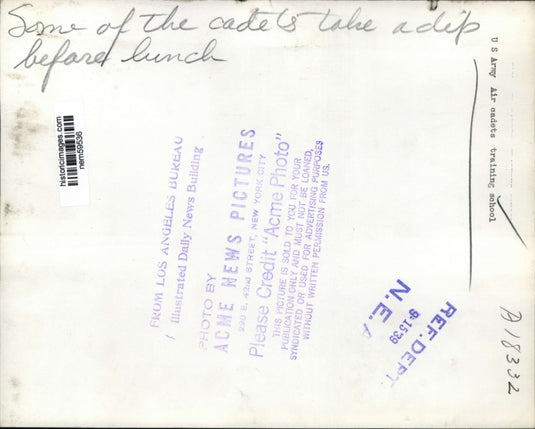 Some of the cadets take a dip
before lunch
U S Army Air cadets training school
historicimages.com
nem59536
FROM LOS ANGELES BUREAU
Illustrated Daily News Building
PHOTO BY
ACME NEWS PICTURES
220 E. 42nd STREET, NEW YORK CITY
Please Credit "Acme Photo"
THIS PICTURE IS SOLD TO YOU FOR YOUR
PUBLICATION ONLY AND MUST NOT BE LOANED,
SYNDICATED OR USED FOR ADVERTISING PURPOSES
WITHOUT WRITTEN PERMISSION FROM US.
REF. DEPT.
9-15-39
N. E. A
A18332